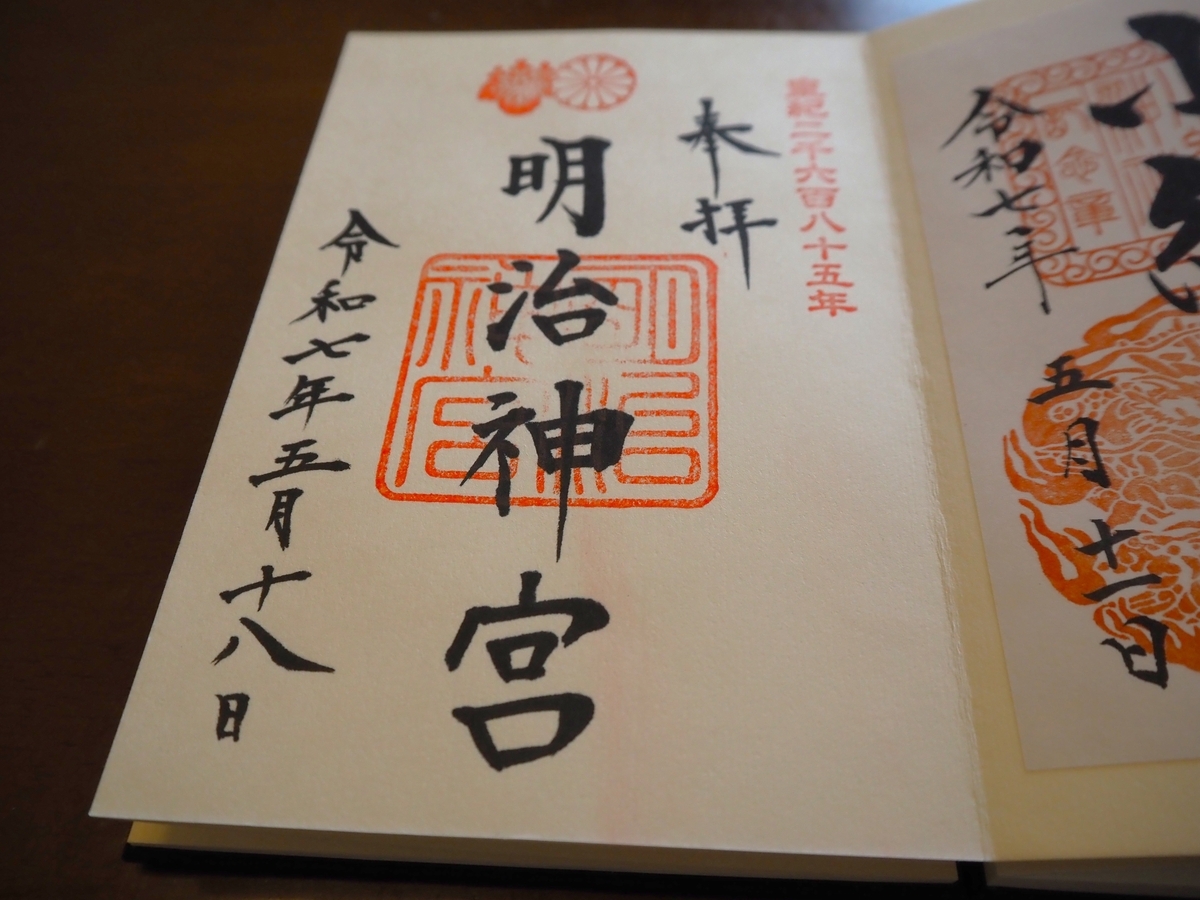 令和七年
五月十一日
皇紀二千六百八十五年
奉拝
明治神宮
令和七年五月十八日